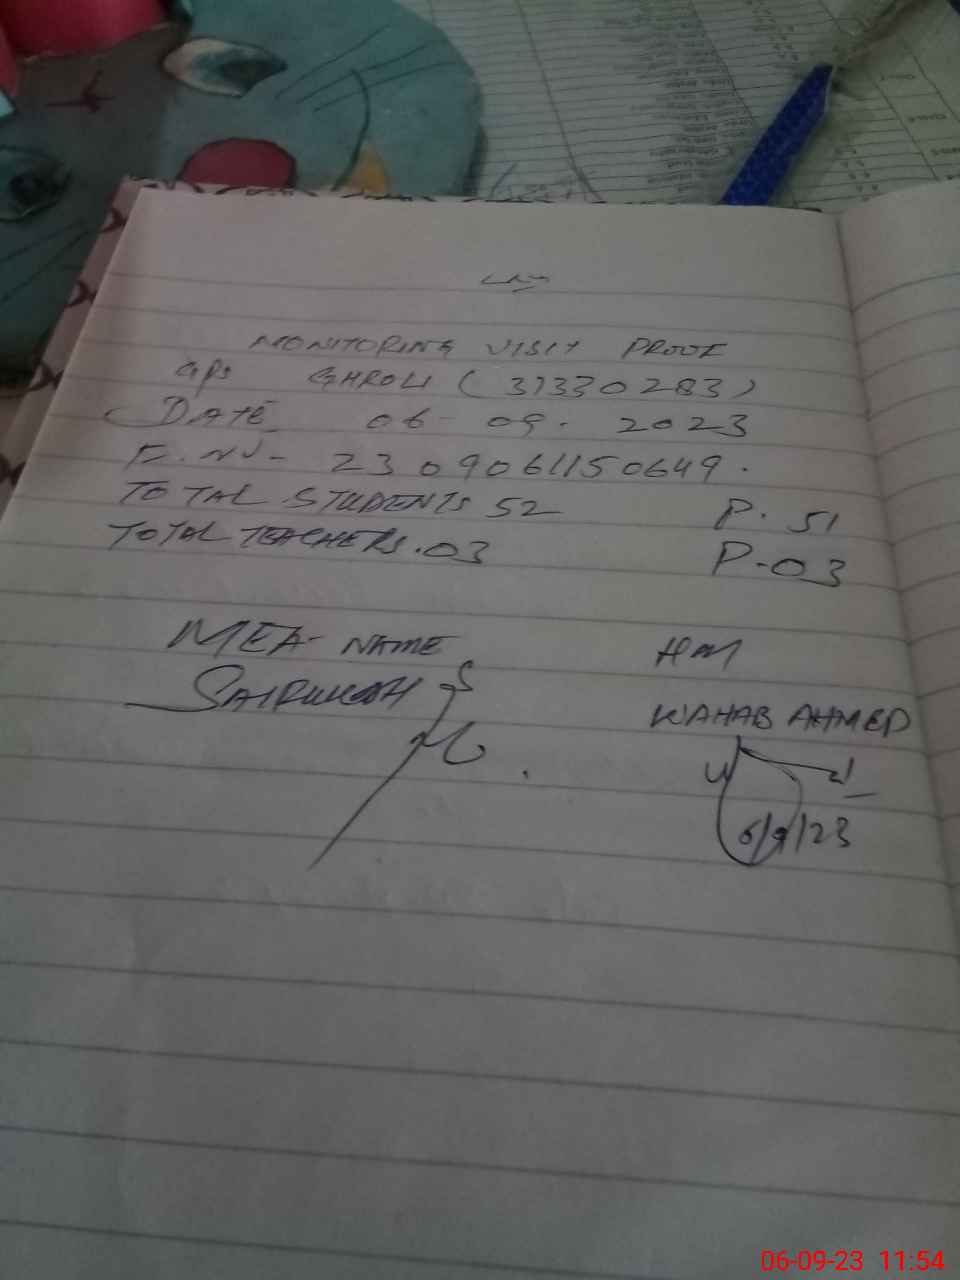 MONITORING VISIT PROOF
GPS GHROLI (31330283)
DATE 06-09-2023
F.NO- 2309061150649.
TOTAL STUDENTS 52 P. 51
TOTAL TEACHERS.03 P-03
MEA-NAME HM
WAHAB AHMED
6/9/23
06-09-23 11:54